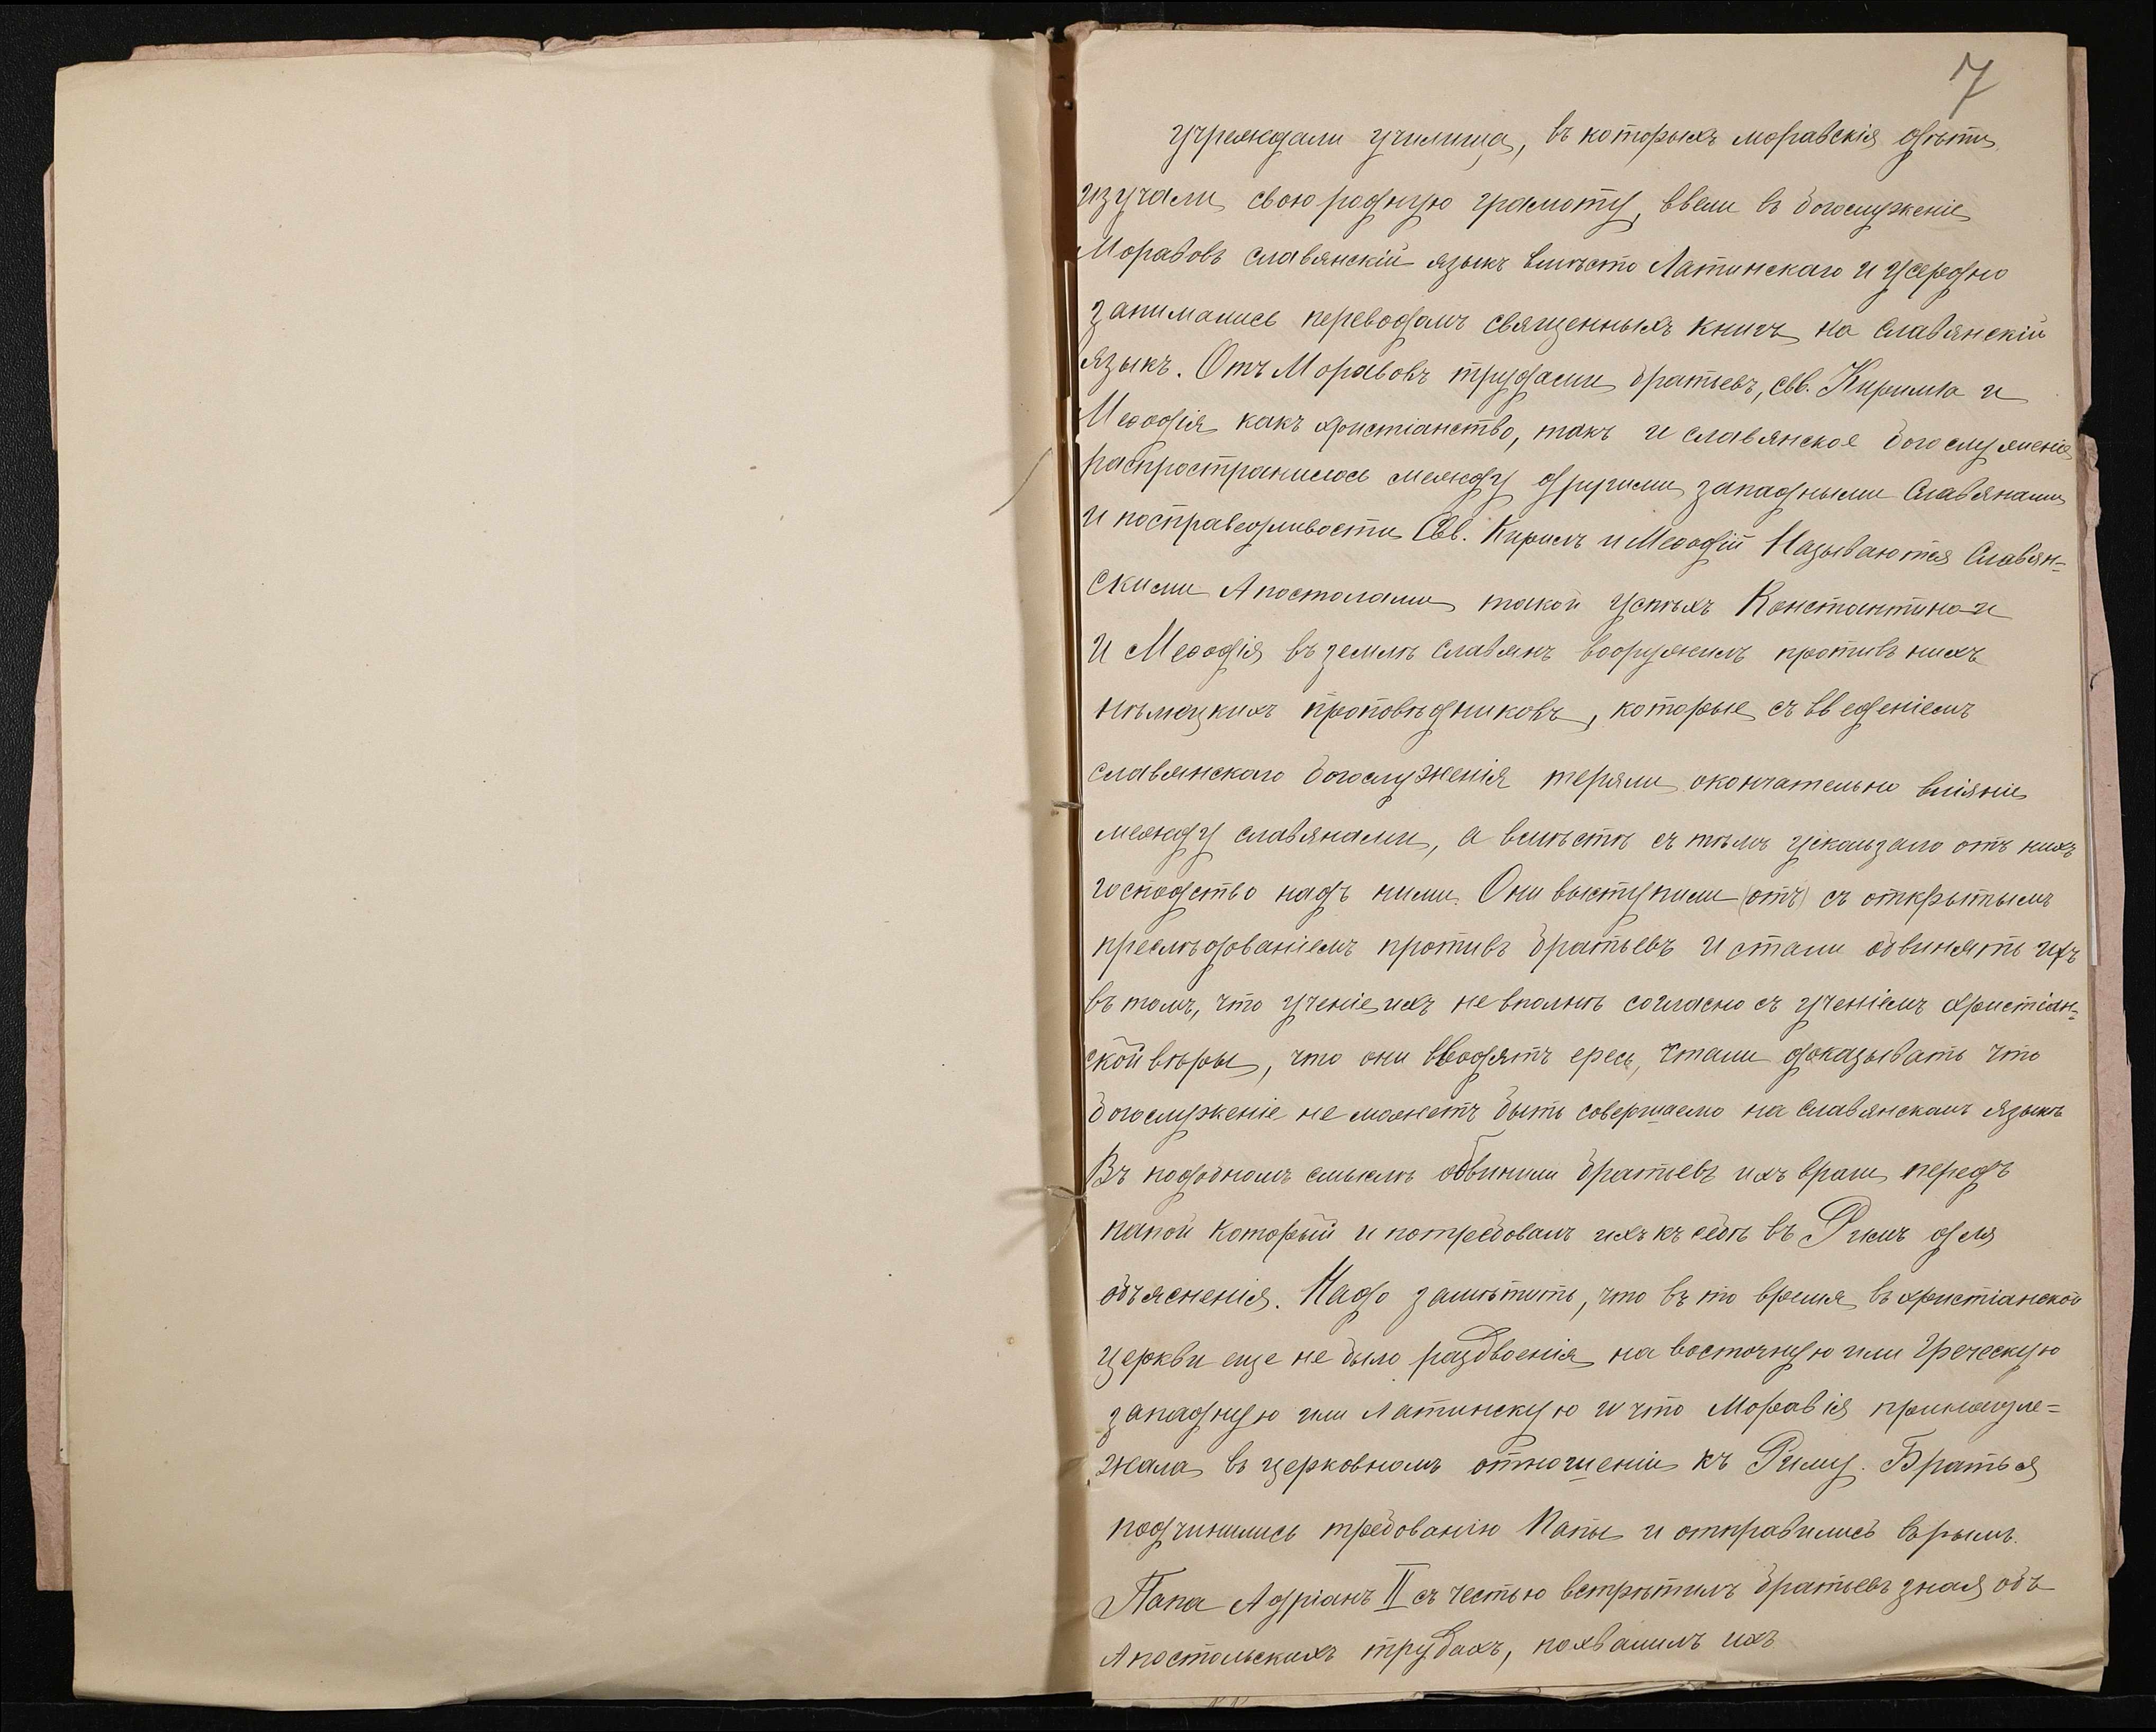 7
учреждали училища, въ которыхъ моравскія дѣти
изучали свою родную грамоту, ввели въ богослуженіе
Моравовъ славянскій языкъ вмѣсто Латинскаго и усердно
занимались переводомъ священныхъ книгъ на Славянскій
языкъ. Отъ Моравовъ трудами братьевъ, свв. Кирилла и
Меѳодія какъ христіанство, такъ и славянское богослуженіе
распространилось между другими западными Славянами
и посправедливости Свв. Кирилъ и Меѳодій Называются Славян-
скими Апостолами такой успѣхъ Константина и
и Меѳодія въ землѣ Славянъ вооружилъ противъ нихъ
нѣмецкихъ проповѣдниковъ, которые съ введеніемъ
славянскаго богослуженія теряли окончательно вліяніе
между славянами, а вмѣстѣ съ тѣмъ ускользало отъ нихъ
господство надъ ними. Они выступили (отъ) съ открытымъ
преслѣдованіемъ противъ братьевъ и стали обвинять ихъ
въ томъ, что ученіе ихъ не вполнѣ согласно съ ученіемъ христіан-
ской вѣры, что они вводятъ ересь, стали доказывать что
богослуженіе не можетъ быть совершаемо на славянскомъ языкѣ
Въ подобномъ смыслѣ обвинили братьевъ ихъ враги передъ
папой который и потребовалъ ихъ къ себѣ въ Римъ для
объясненія. Надо замѣтить, что въ то время въ христіанской
церкви еще не было раздвоенія на восточную или Греческую
западную или Латинскую и что Моравія принадле-
жала въ церковномъ отношеніи къ Риму. Братья
подчинились требованію Папы и отправились въ рымъ.
Папа Адріанъ II съ честью встрѣтилъ братьевъ зная объ
Апостольскихъ трудахъ, похвалилъ ихъ